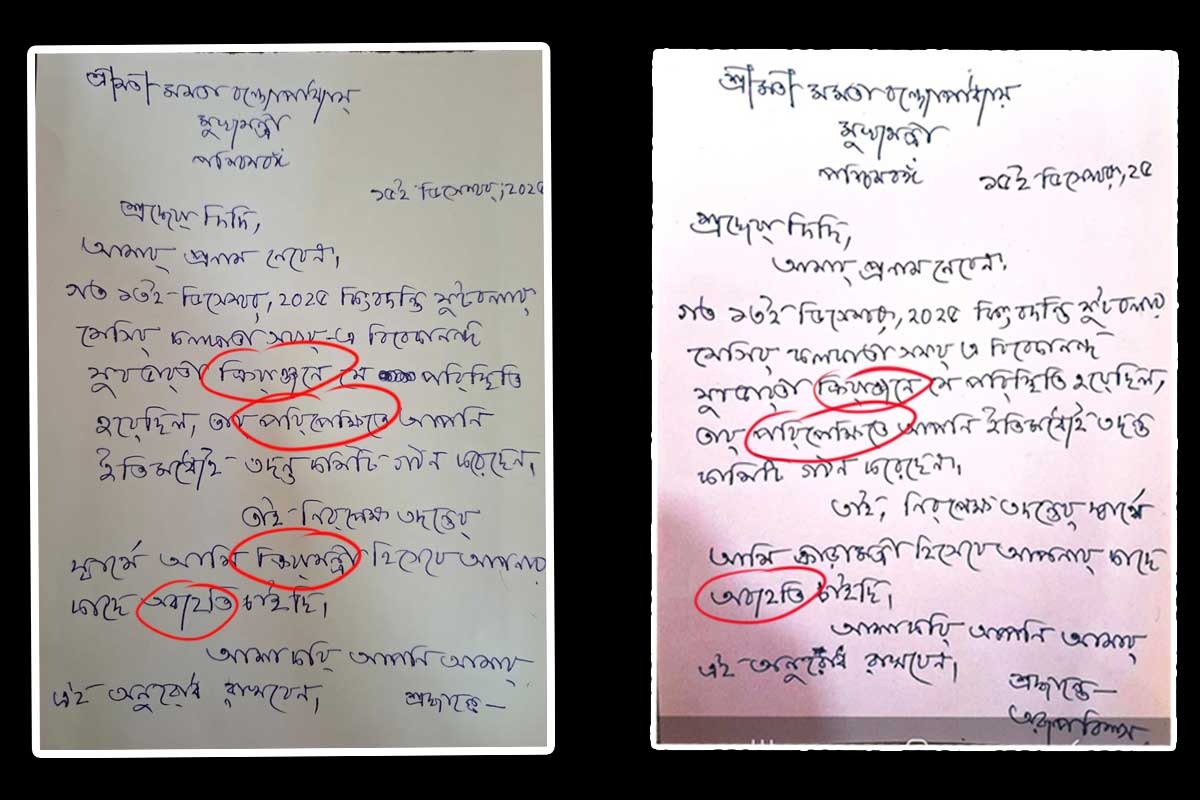 শ্রীমতী মমতা বন্দ্যোপাধ্যায়
মুখ্যমন্ত্রী
পশ্চিমবঙ্গ
১৫ই ডিসেম্বর, ২০২৫
শ্রদ্ধেয় দিদি,
আমার প্রনাম নেবেন।
গত ১৩ই- ডিসেম্বর, ২০২৫ কিংবদন্তি ফুটবলার
মেসির কলকাতা সফর-এ বিবেকানন্দ
যুবভারতী ক্রিয়াঙ্গনে যে পরিস্থিতি
হয়েছিল, তার পরিপেক্ষিতে আপনি
ইতিমধ্যেই- তদন্ত কমিটি গঠন করেছেন।
তাই- নিরপেক্ষ তদন্তের
স্বার্থে আমি ক্রিয়ামন্ত্রী হিসেবে আপনার
কাছে অব্যহতি চাইছি।
আশা করি আপনি আমার
এই অনুরোধ রাখবেন। শ্রদ্ধান্তে—
শ্রীমতী মমতা বন্দ্যোপাধ্যায়
মুখ্যমন্ত্রী
পশ্চিমবঙ্গ
১৫ই ডিসেম্বর, ২৫
শ্রদ্ধেয় দিদি,
আমার প্রনাম নেবেন।
গত ১৩ই ডিসেম্বর, ২০২৫ কিংবদন্তি ফুটবলার
মেসির কলকাতা সফর এ বিবেকানন্দ
যুবভারতী ক্রিয়াঙ্গনে যে পরিস্থিতি হয়েছিল,
তার পরিপেক্ষিতে আপনি ইতিমধ্যেই তদন্ত
কমিটি গঠন করেছেন।
তাই, নিরপেক্ষ তদন্তের স্বার্থে
আমি ক্রীড়ামন্ত্রী হিসেবে আপনার কাছে
অব্যহতি চাইছি।
আশা করি আপনি আমার
এই অনুরোধ রাখবেন।
শ্রদ্ধান্তে—
অরূপ বিশ্বাস